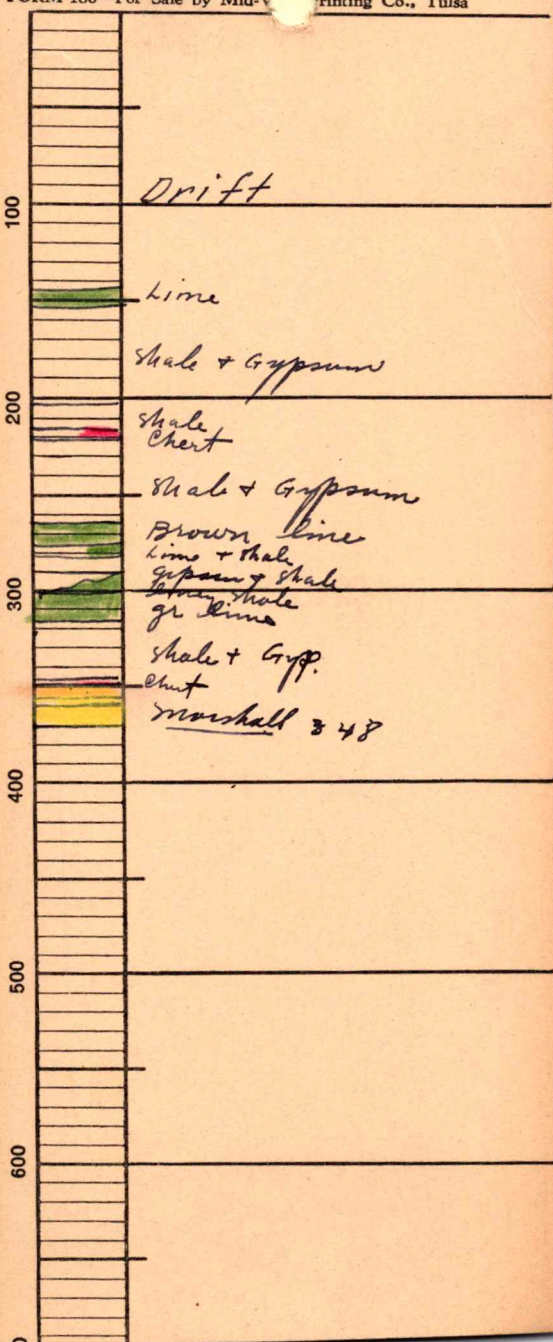 FORM 100 For Sale by Mid- Printing Co., Tulsa
Drift
100
Lime
Shale + Gypsum
200
Shale
Chert
Shale + Gypsum
Brown lime
Lime + Shale
gypsum + Shale
300
limey shale
gr lime
Shale + Gyp.
Chert
Marshall 348
400
500
600